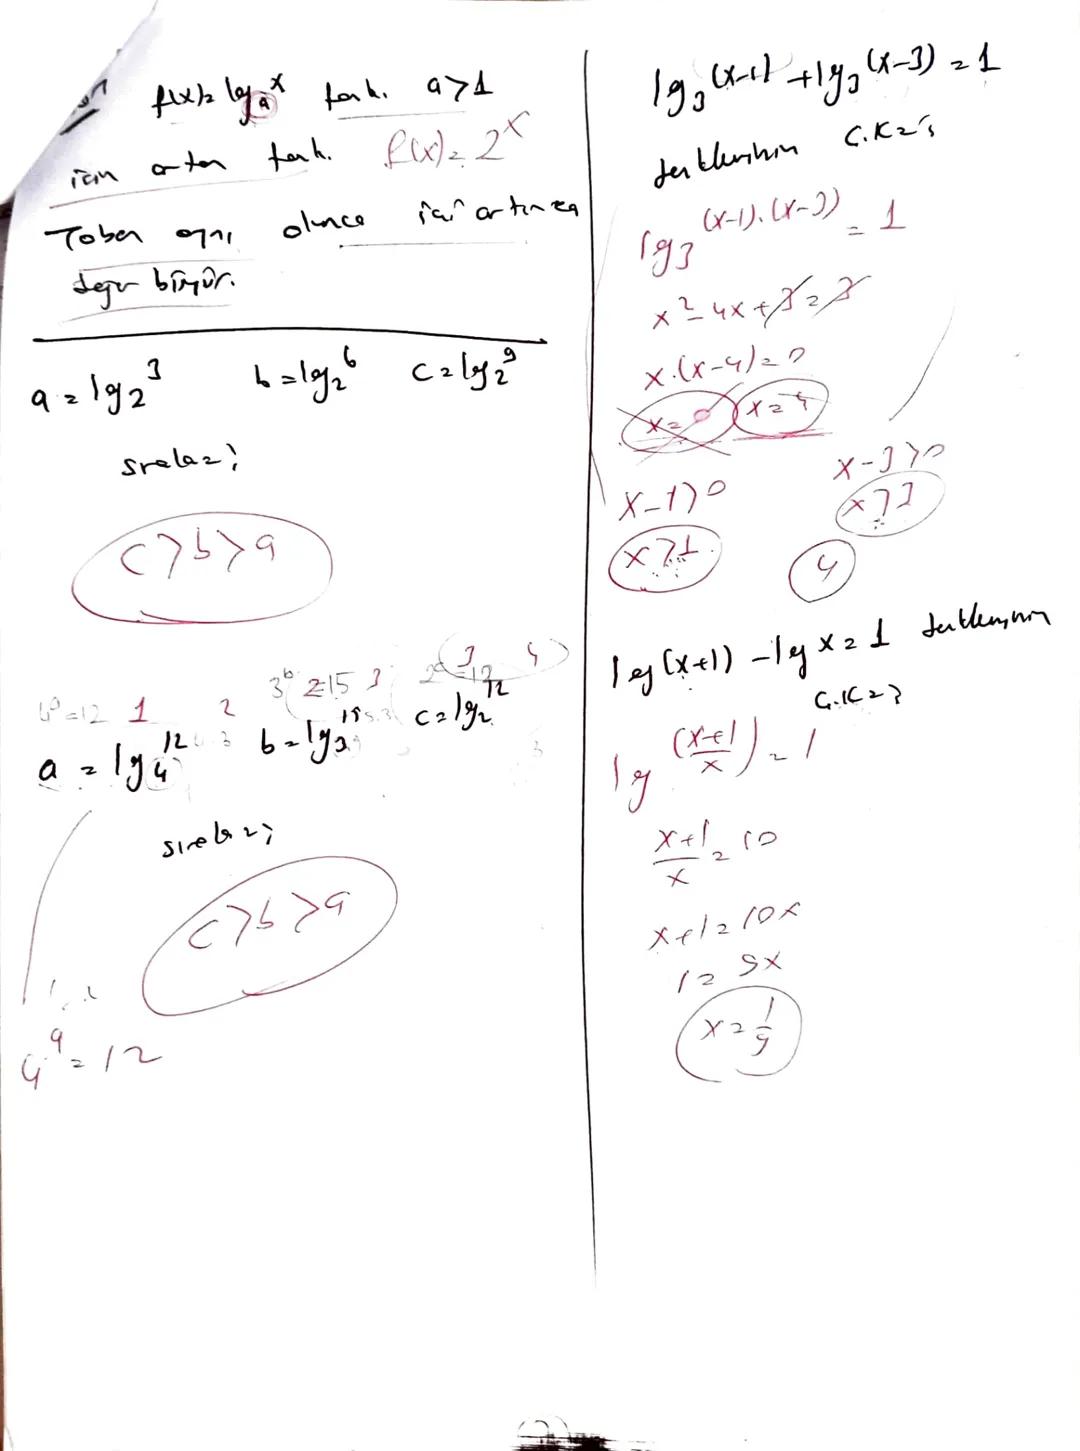 f(x)= log_a x fonk. a>1
için artan fonk. f(x)=2^x
Taban aynı olunca içi artınca
değer büyür.
a = log_2 3 b = log_2 6 c = log_2 9
sırala=?
c>b>a
4^a=12 1 2 3^b=15 3 2^c=12 3 4
a = log_4 12 b = log_3 15 c = log_2 12
sırala=?
c>b>a
4^a = 12
log_3 (x-1) + log_3 (x-3) = 1
denkleminin Ç.K=?
log_3 (x-1).(x-3) = 1
x^2 - 4x + 3 = 3
x.(x-4) = 0
x=0 x=4
x-1>0 x-3>0
x>1 x>3
4
log(x+1) - log x = 1 denkleminin
Ç.K=?
log (x+1/x) = 1
x+1/x = 10
x+1 = 10x
1 = 9x
x = 1/9